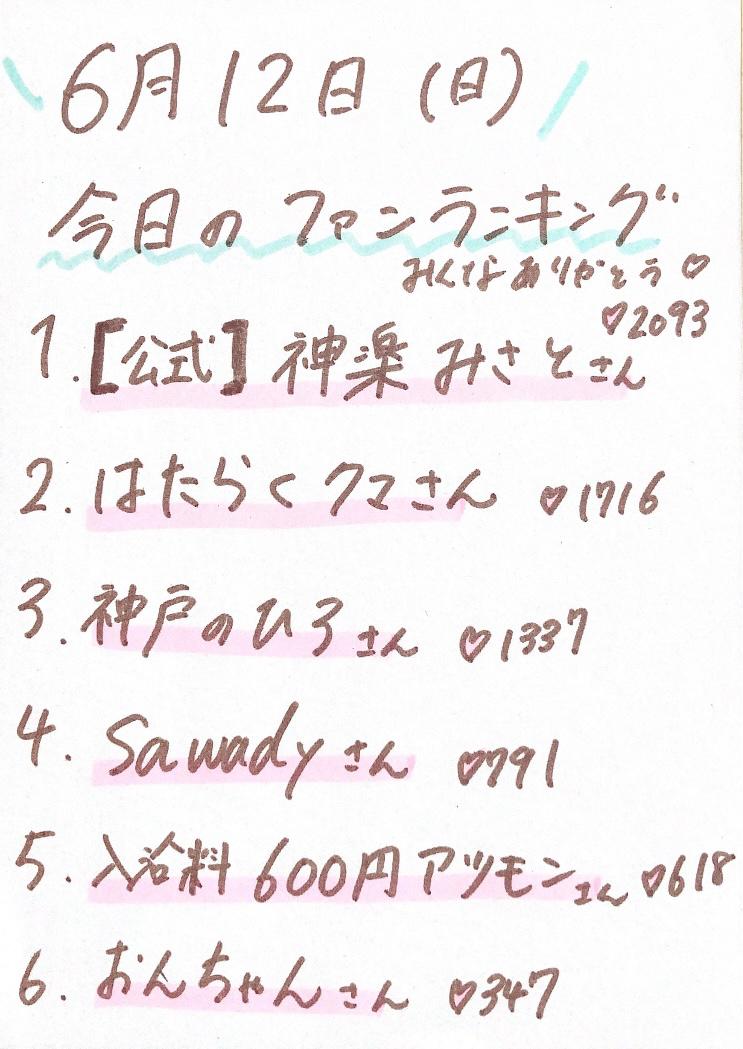 \ 6月12日(日) /
今日のファンランキング
みんなありがとう♡
♡2093
1.【公式】神楽みさとさん
2.はたらくクマさん ♡1716
3.神戸のひろさん ♡1337
4.Sawadyさん ♡791
5.入浴料600円アツモンさん ♡618
6.おんちゃんさん ♡347